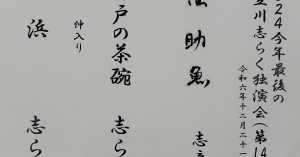 24今年最後の
立川志らく独演会(第14
令和六年十二月二十一
助魚 志
戸の茶碗 志ら
仲入り
浜 志ら